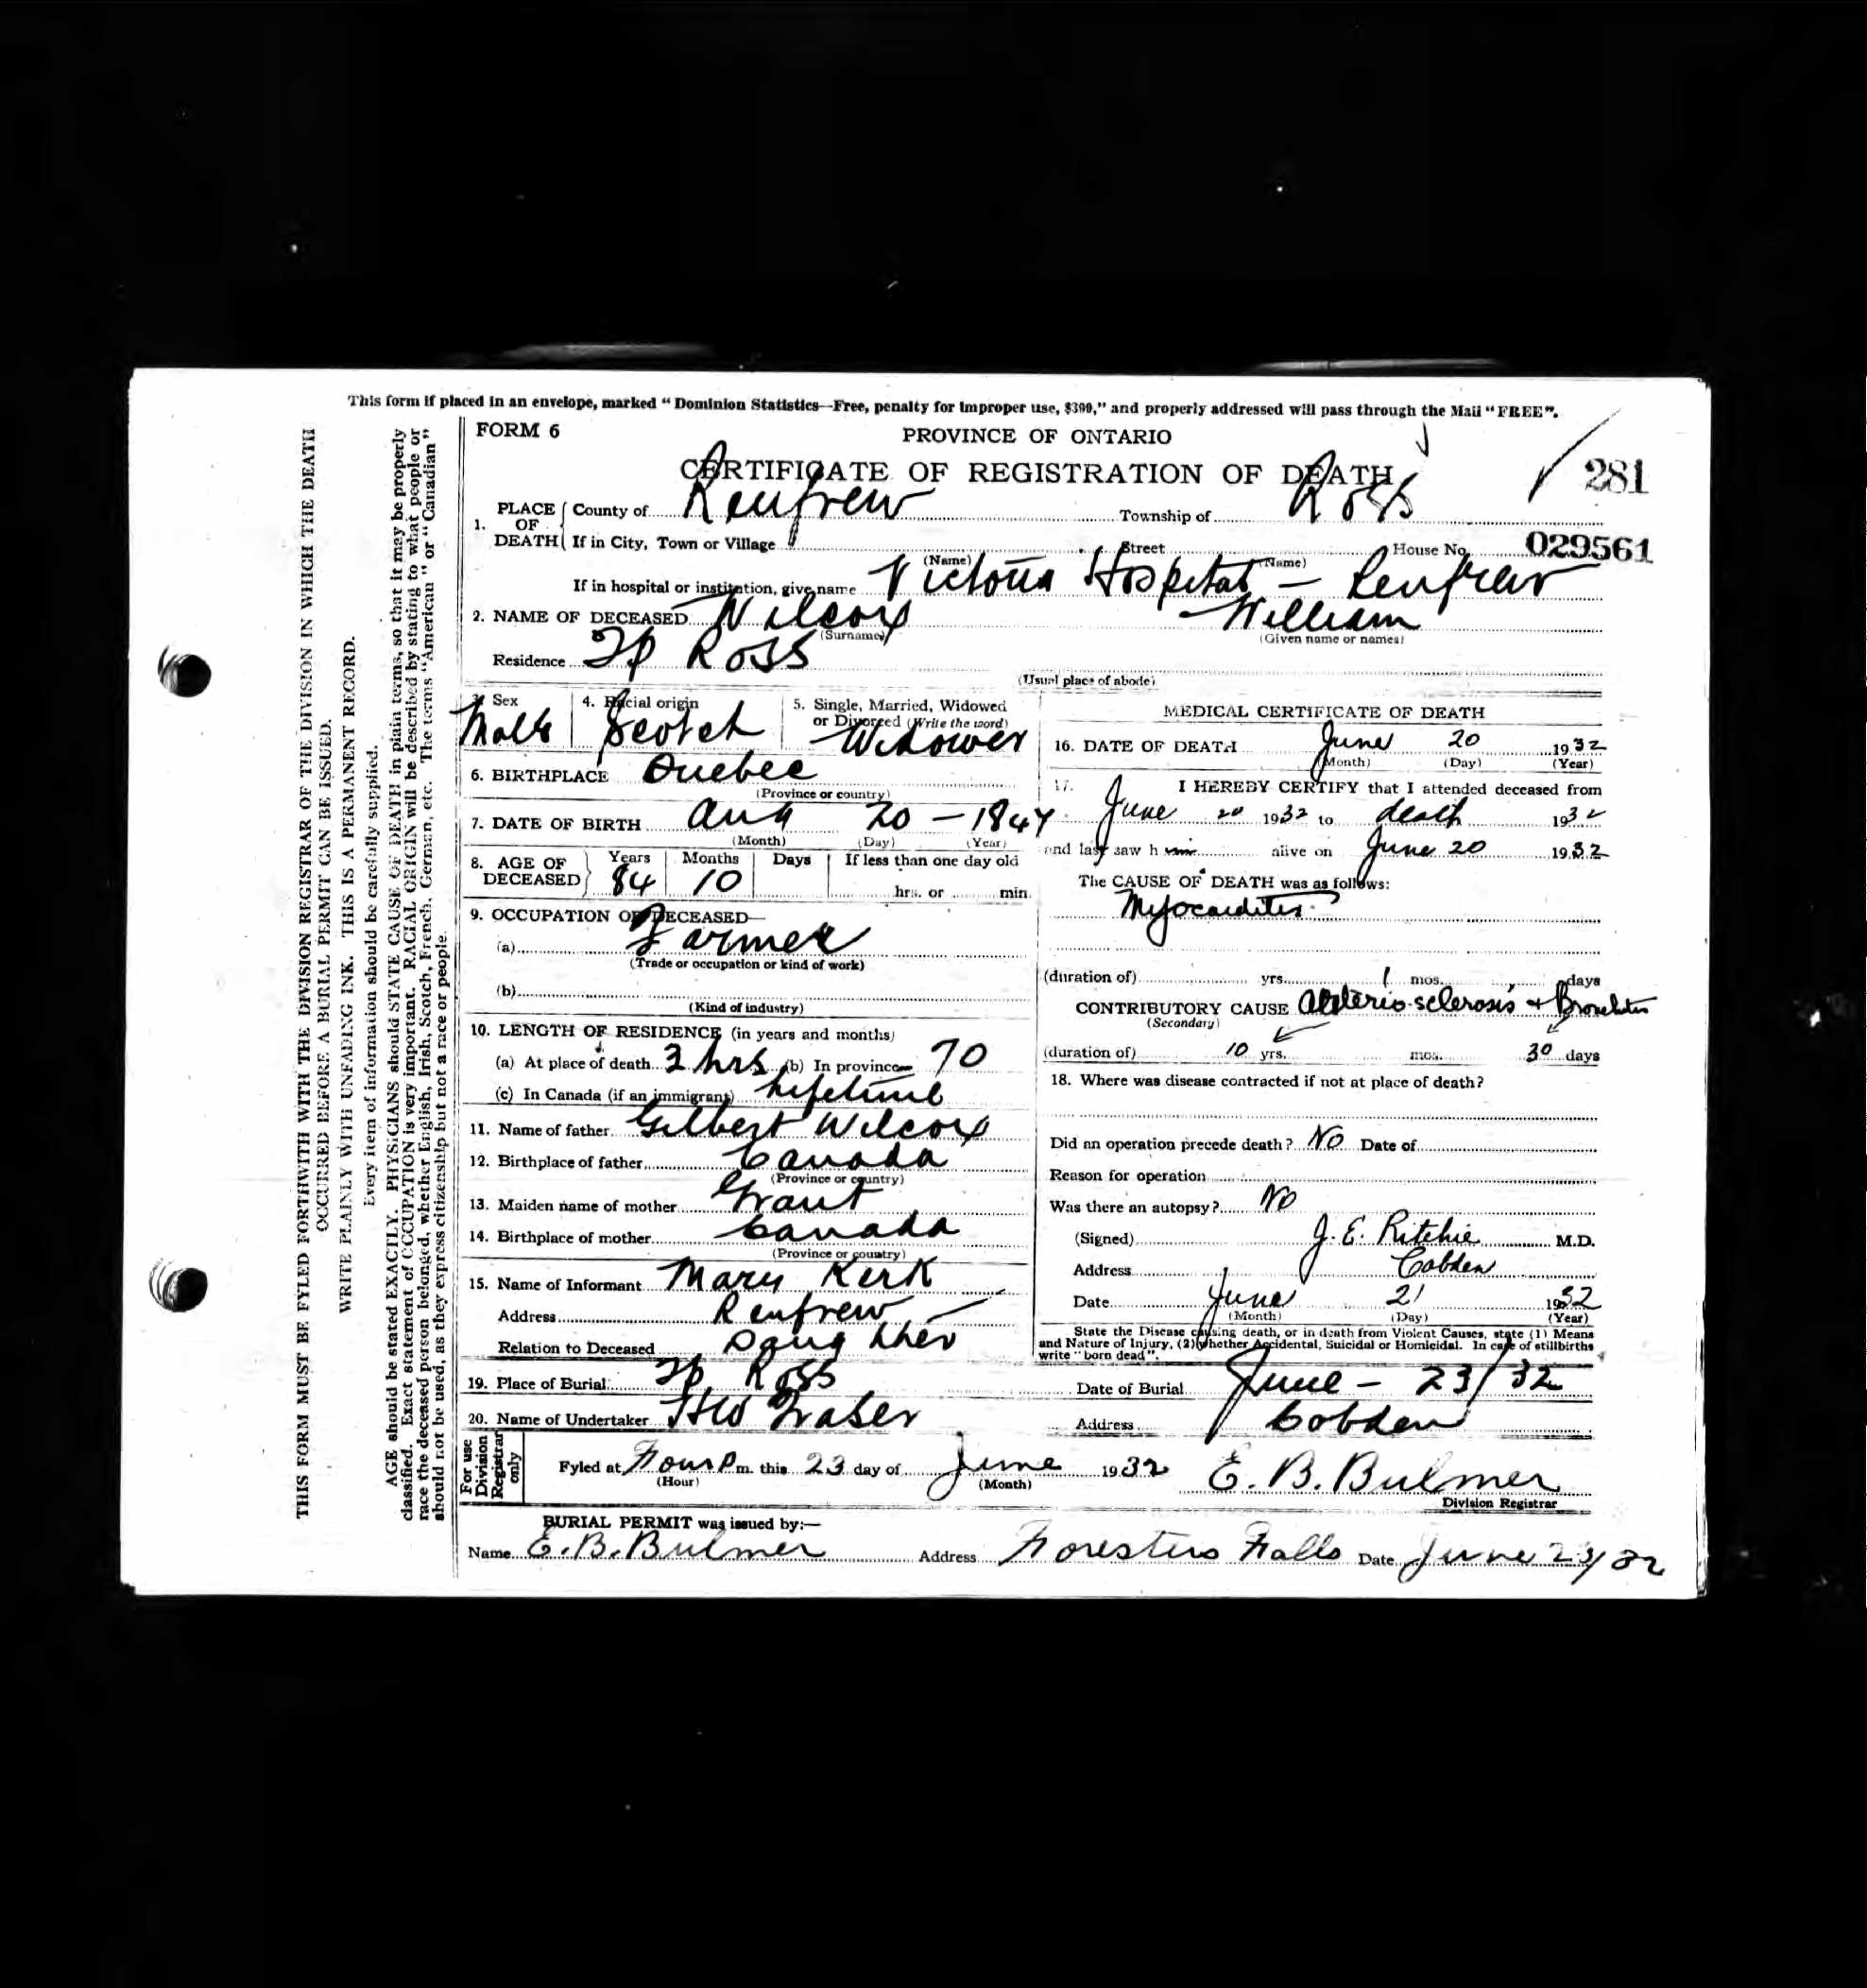 This form if placed in an envelope, marked "Dominion Statistics—Free, penalty for improper use, $300," and properly addressed will pass through the Mail "FREE".
FORM 6
PROVINCE OF ONTARIO
CERTIFICATE OF REGISTRATION OF DEATH
281
1. PLACE OF DEATH County of Renfrew Township of Ross
If in City, Town or Village (Name) Street (Name) House No. 029561
If in hospital or institution, give name Victoria Hospital – Renfrew
2. NAME OF DECEASED Wilcox (Surname) William (Given name or names)
Residence Tp Ross (Usual place of abode)
3. Sex Male
4. Racial origin Scotch
5. Single, Married, Widowed or Divorced (Write the word) Widower
6. BIRTHPLACE Quebec (Province or country)
7. DATE OF BIRTH Aug 20 – 1847
(Month) (Day) (Year)
8. AGE OF DECEASED Years 84 Months 10 Days If less than one day old hrs. or min.
9. OCCUPATION OF DECEASED—
(a) Farmer
(Trade or occupation or kind of work)
(b)
(Kind of industry)
10. LENGTH OF RESIDENCE (in years and months)
(a) At place of death 3 hrs (b) In province 70
(c) In Canada (if an immigrant) Lifetime
11. Name of father Gilbert Wilcox
12. Birthplace of father Canada
(Province or country)
13. Maiden name of mother Grant
14. Birthplace of mother Canada
(Province or country)
15. Name of Informant Mary Kerk
Address Renfrew
Relation to Deceased Daughter
MEDICAL CERTIFICATE OF DEATH
16. DATE OF DEATH June 20 1932
(Month) (Day) (Year)
17. I HEREBY CERTIFY that I attended deceased from
June 20 1932 to death 1932
and last saw him alive on June 20 1932
The CAUSE OF DEATH was as follows:
Myocarditis
(duration of) yrs. 1 mos. days
CONTRIBUTORY CAUSE Arterio-sclerosis + Bronchitis
(Secondary)
(duration of) 10 yrs. mos. 30 days
18. Where was disease contracted if not at place of death?
Did an operation precede death? No Date of
Reason for operation
Was there an autopsy? No
(Signed) J. E. Ritchie M.D.
Address Cobden
Date June 21 1932
(Month) (Day) (Year)
State the Disease causing death, or in death from Violent Causes, state (1) Means
and Nature of Injury, (2) whether Accidental, Suicidal or Homicidal. In case of stillbirths
write "born dead".
19. Place of Burial Tp Ross Date of Burial June – 23/32
20. Name of Undertaker HW Fraser Address Cobden
For use Division Registrar only
Fyled at Four P m. this 23 day of June 1932 E. B. Bulmer
(Hour) (Month) Division Registrar
BURIAL PERMIT was issued by:—
Name E. B. Bulmer Address Foresters Falls Date June 23/32
THIS FORM MUST BE FYLED FORTHWITH WITH THE DIVISION REGISTRAR OF THE DIVISION IN WHICH THE DEATH
OCCURRED BEFORE A BURIAL PERMIT CAN BE ISSUED.
WRITE PLAINLY WITH UNFADING INK. THIS IS A PERMANENT RECORD.
Every item of information should be carefully supplied.
AGE should be stated EXACTLY. PHYSICIANS should STATE CAUSE OF DEATH in plain terms, so that it may be properly
classified. Exact statement of OCCUPATION is very important. RACIAL ORIGIN will be described by stating to what people or
race the deceased person belonged, whether English, Irish, Scotch, French, German, etc. The terms "American" or "Canadian"
should not be used, as they express citizenship but not a race or people.